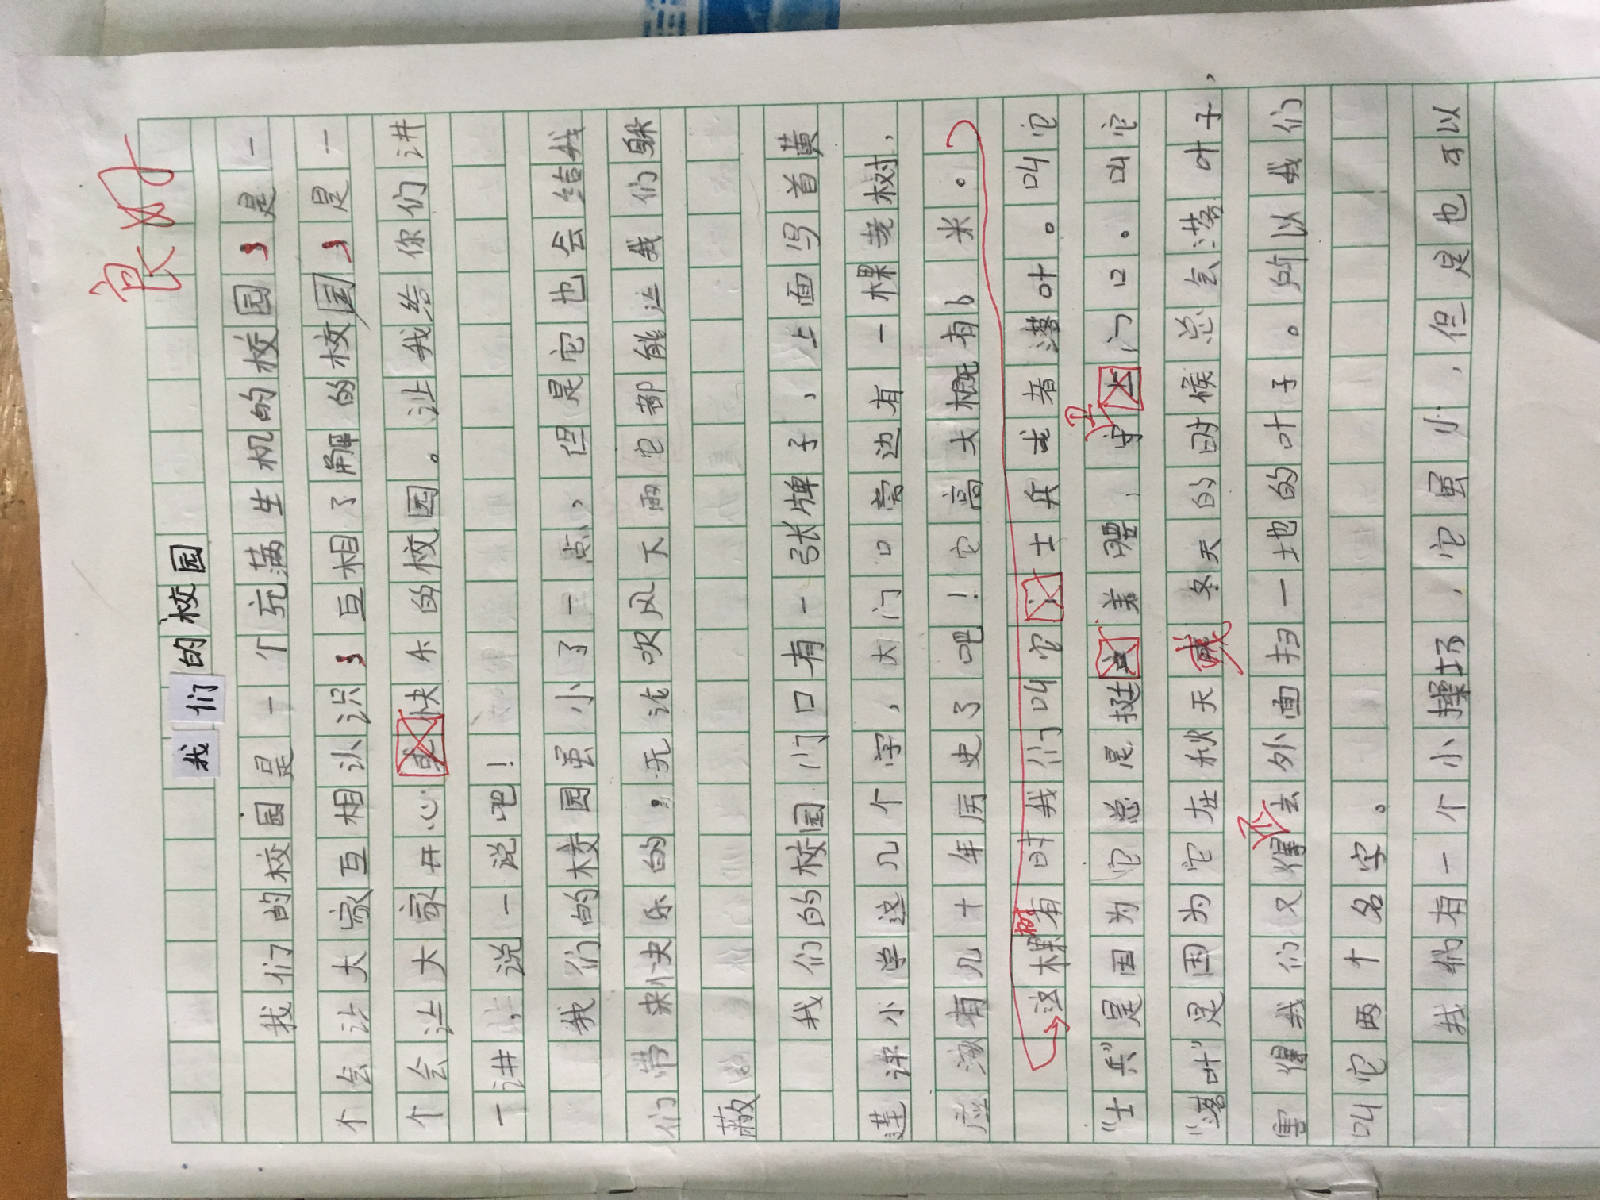 我们的校园
我们的校园是一个充满生机的校园，是一
个会让大家互相认识，互相了解的校园，是一
个会让大家开心快乐的校园。让我给你们讲
一讲，说一说吧！
我们的校园虽小了一点，但是它也会给我
们带来快乐的，无论吹风下雨它都能让我们躲
蔽
我们的校园门口有一张牌子，上面写着黄
莲涂小学这几个字，大门口旁边有一棵老树，
应该有几十年历史了吧！它高大概有6米。
这棵树有时我们叫它士兵或者落叶。叫它
“士兵”是因为它总是挺着腰守卫门口。叫它
“落叶”是因为它在秋天或冬天的时候总会落叶子，
害得我们又得去外面扫一地的叶子。所以我们
叫它两个名字。
我们有一个小操场，它虽小，但是也可以
很好